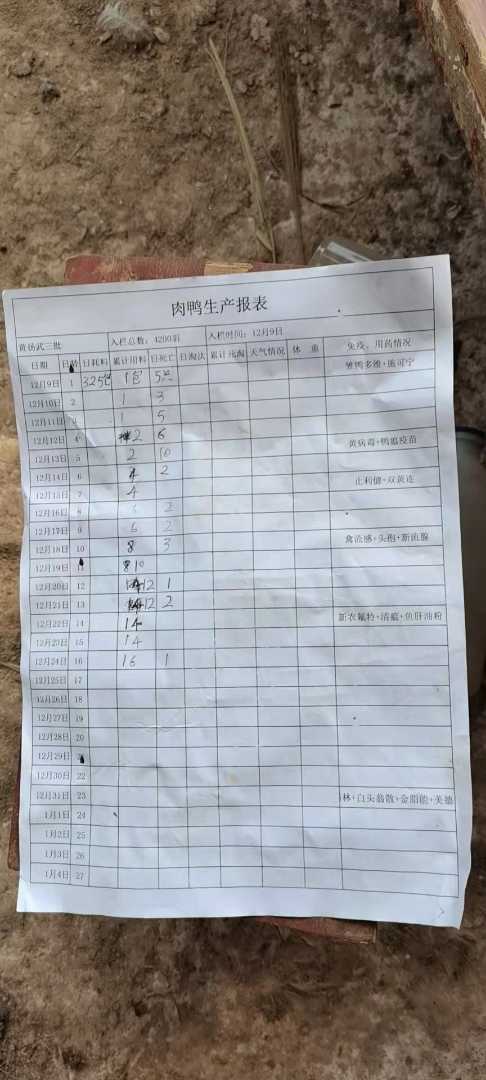 肉鸭生产报表
黄扬武三批 入栏总数：4200羽 入栏时间：12月9日
日期 日龄 日耗料 累计用料 日死亡 日淘汰 累计死淘 天气情况 体 重 免疫、用药情况
12月9日 1 325 1包 5只 雏鸭多维+施可宁
12月10日 2 1 3
12月11日 3 1 5
12月12日 4 2 6 黄病毒+鸭瘟疫苗
12月13日 5 2 10
12月14日 6 4 2 止利健+双黄连
12月15日 7 4
12月16日 8 6 2
12月17日 9 6 2
12月18日 10 8 3 禽流感+头孢+新流腺
12月19日 11 10
12月20日 12 12 1
12月21日 13 12 2
12月22日 14 14 新农氟特+清瘟+鱼肝油粉
12月23日 15 14
12月24日 16 16 1
12月25日 17
12月26日 18
12月27日 19
12月28日 20
12月29日
12月30日 22
12月31日 23 林+白头翁散+金脂能+美德
1月1日 24
1月2日 25
1月3日 26
1月4日 27